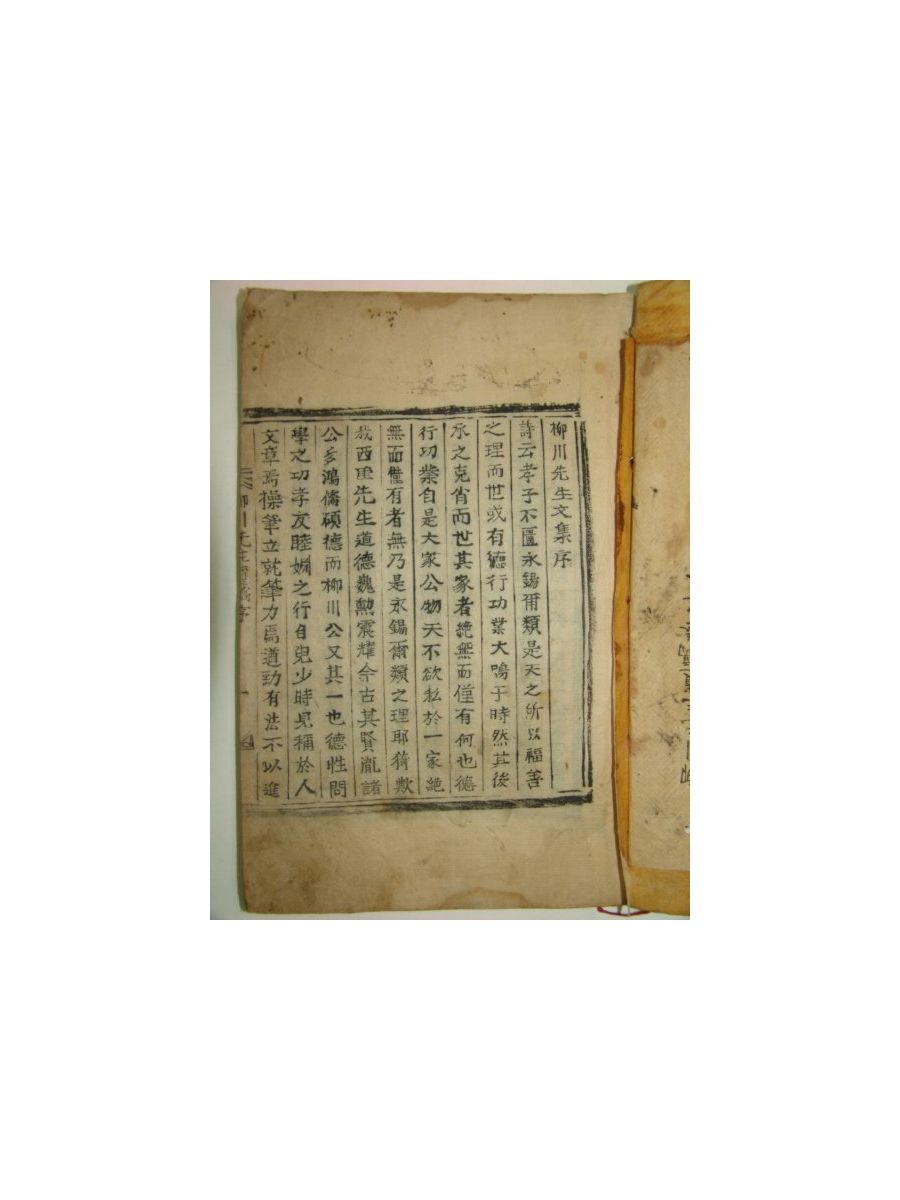 柳川先生文集序
詩云孝子不匱永錫爾類是天之所以福善
之理而世或有德行功業大鳴于時然其後
承之克肖而世其家者絶無而僅有何也德
行功業自是大家公物天不欲私於一家絶
無而僅有者無乃是永錫爾類之理耶猗歟
我西厓先生道德巍勲震耀今古其賢胤諸
公多鴻儒碩德而柳川公又其一也德性問
學之功孝友睦婣之行自兒少時見稱於人
文章焉操筆立就筆力焉遒勁有法不以進